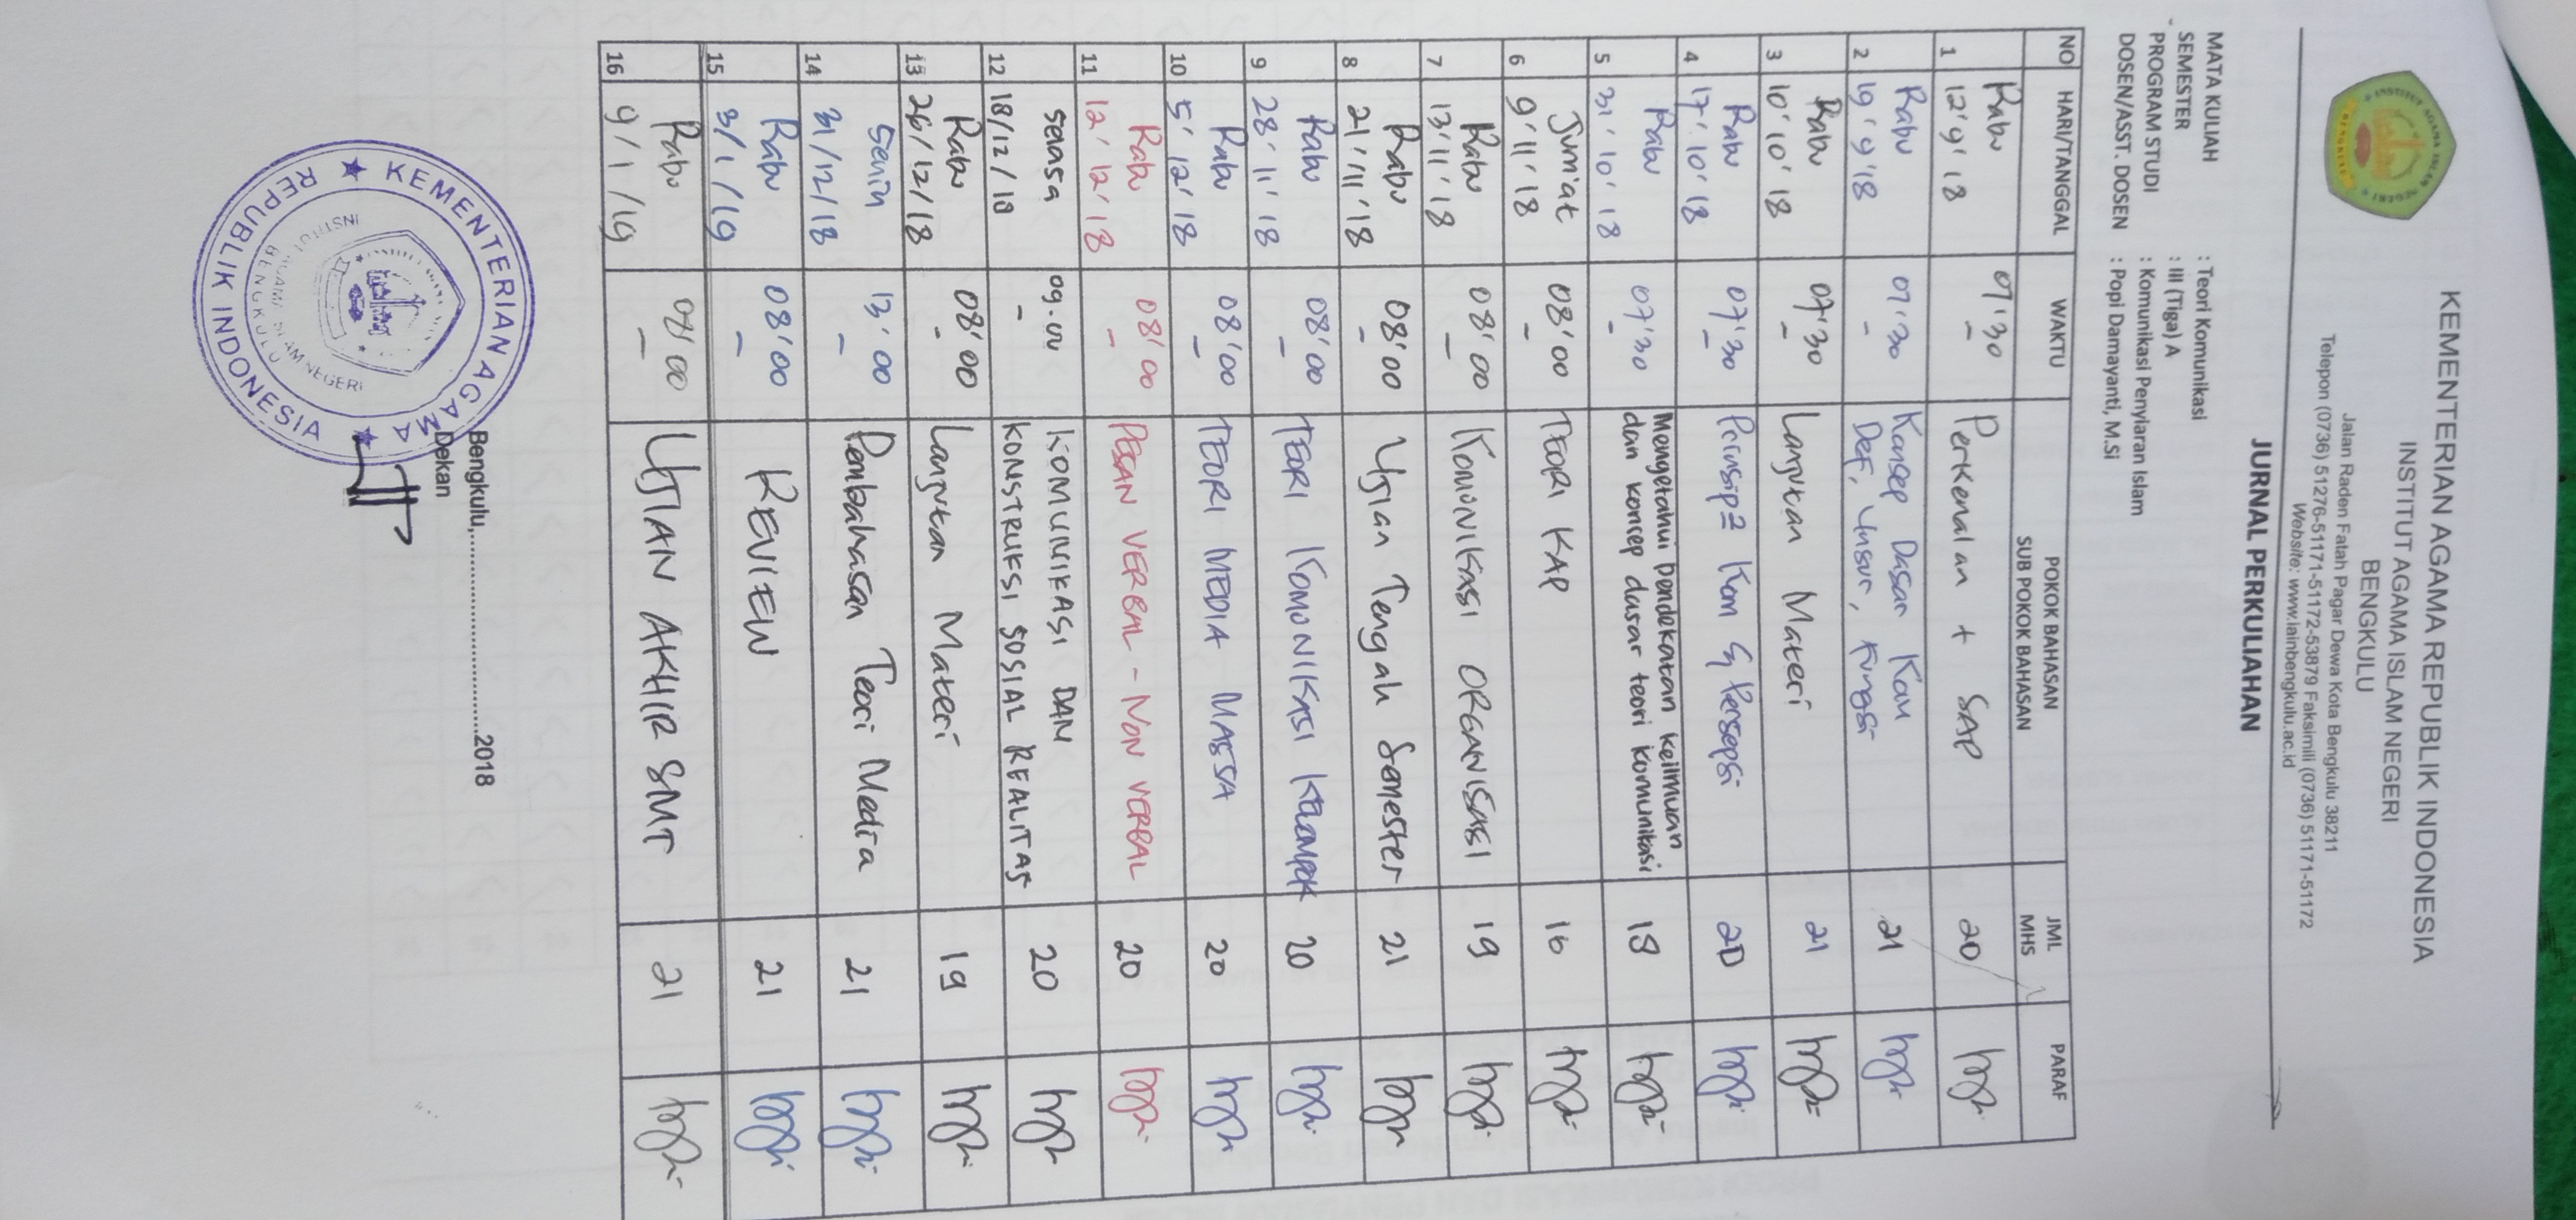 KEMENTERIAN AGAMA REPUBLIK INDONESIA
INSTITUT AGAMA ISLAM NEGERI
BENGKULU
Jalan Raden Fatah Pagar Dewa Kota Bengkulu 38211
Telepon (0736) 51276-51171-51172-53879 Faksimili (0736) 51171-51172
Website: www.iainbengkulu.ac.id
JURNAL PERKULIAHAN
MATA KULIAH : Teori Komunikasi
SEMESTER : III (Tiga) A
PROGRAM STUDI : Komunikasi Penyiaran Islam
DOSEN/ASST. DOSEN : Popi Damayanti, M.Si
NO HARI/TANGGAL WAKTU POKOK BAHASAN JML PARAF
SUB POKOK BAHASAN MHS
1 Rabu 07'30 Perkenalan + SAP 20
12'9'18 -
2 Rabu 07'30 Konsep Dasar Kom 21
19'9'18 - Def, Unsur, Fungsi
3 Rabu 07'30 Lanjutan Materi 21
10'10'18 -
4 Rabu 07'30 Prinsip2 Kom & Persepsi 20
17'10'18 -
5 Rabu 07'30 Mengetahui pendekatan keilmuan 18
31'10'18 - dan konsep dasar teori komunikasi
6 Jum'at 08'00 TEORI KAP 16
9'11'18 -
7 Rabu 08'00 KOMUNIKASI ORGANISASI 19
13'11'18 -
8 Rabu 08'00 Ujian Tengah Semester 21
21'11'18 -
9 Rabu 08'00 TEORI KOMUNIKASI KELOMPOK 20
28'11'18 -
10 Rabu 08'00 TEORI MEDIA MASSA 20
5'12'18 -
11 Rabu 08'00 PESAN VERBAL - NON VERBAL 20
12'12'18 -
12 Selasa 09.00 KOMUNIKASI DAN 20
18/12/18 - KONSTRUKSI SOSIAL REALITAS
13 Rabu 08'00 Lanjutan Materi 19
26/12/18 -
14 Senin 13'00 Pembahasan Teori Media 21
31/12/18 -
15 Rabu 08'00 REVIEW 21
3/1/19 -
16 Rabu 08'00 UJIAN AKHIR SMT 21
9/1/19 -
Bengkulu,........................2018
Dekan
KEMENTERIAN AGAMA
REPUBLIK INDONESIA
INSTITUT AGAMA ISLAM NEGERI
BENGKULU